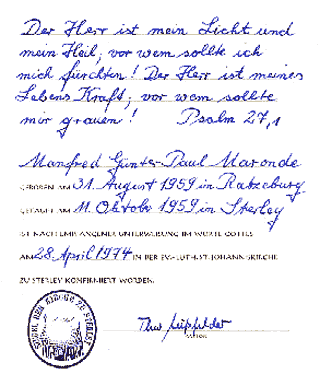 Der Herr ist mein Licht und
mein Heil; vor wem sollte ich
mich fürchten! Der Herr ist meines
Lebens Kraft; vor wem sollte
mir grauen! Psalm 27,1
Manfred Günter Paul Maronde
GEBOREN AM 31. August 1959 in Ratzeburg
GETAUFT AM 11. Oktober 1959 in Sterley
IST NACH EMPFANGENER UNTERWEISUNG IM WORTE GOTTES
AM 28. April 1974 IN DER EV.-LUTH. ST. JOHANNSKIRCHE
ZU STERLEY KONFIRMIERT WORDEN.
SIEGEL DER KIRCHE ZU STERLEY
PASTOR